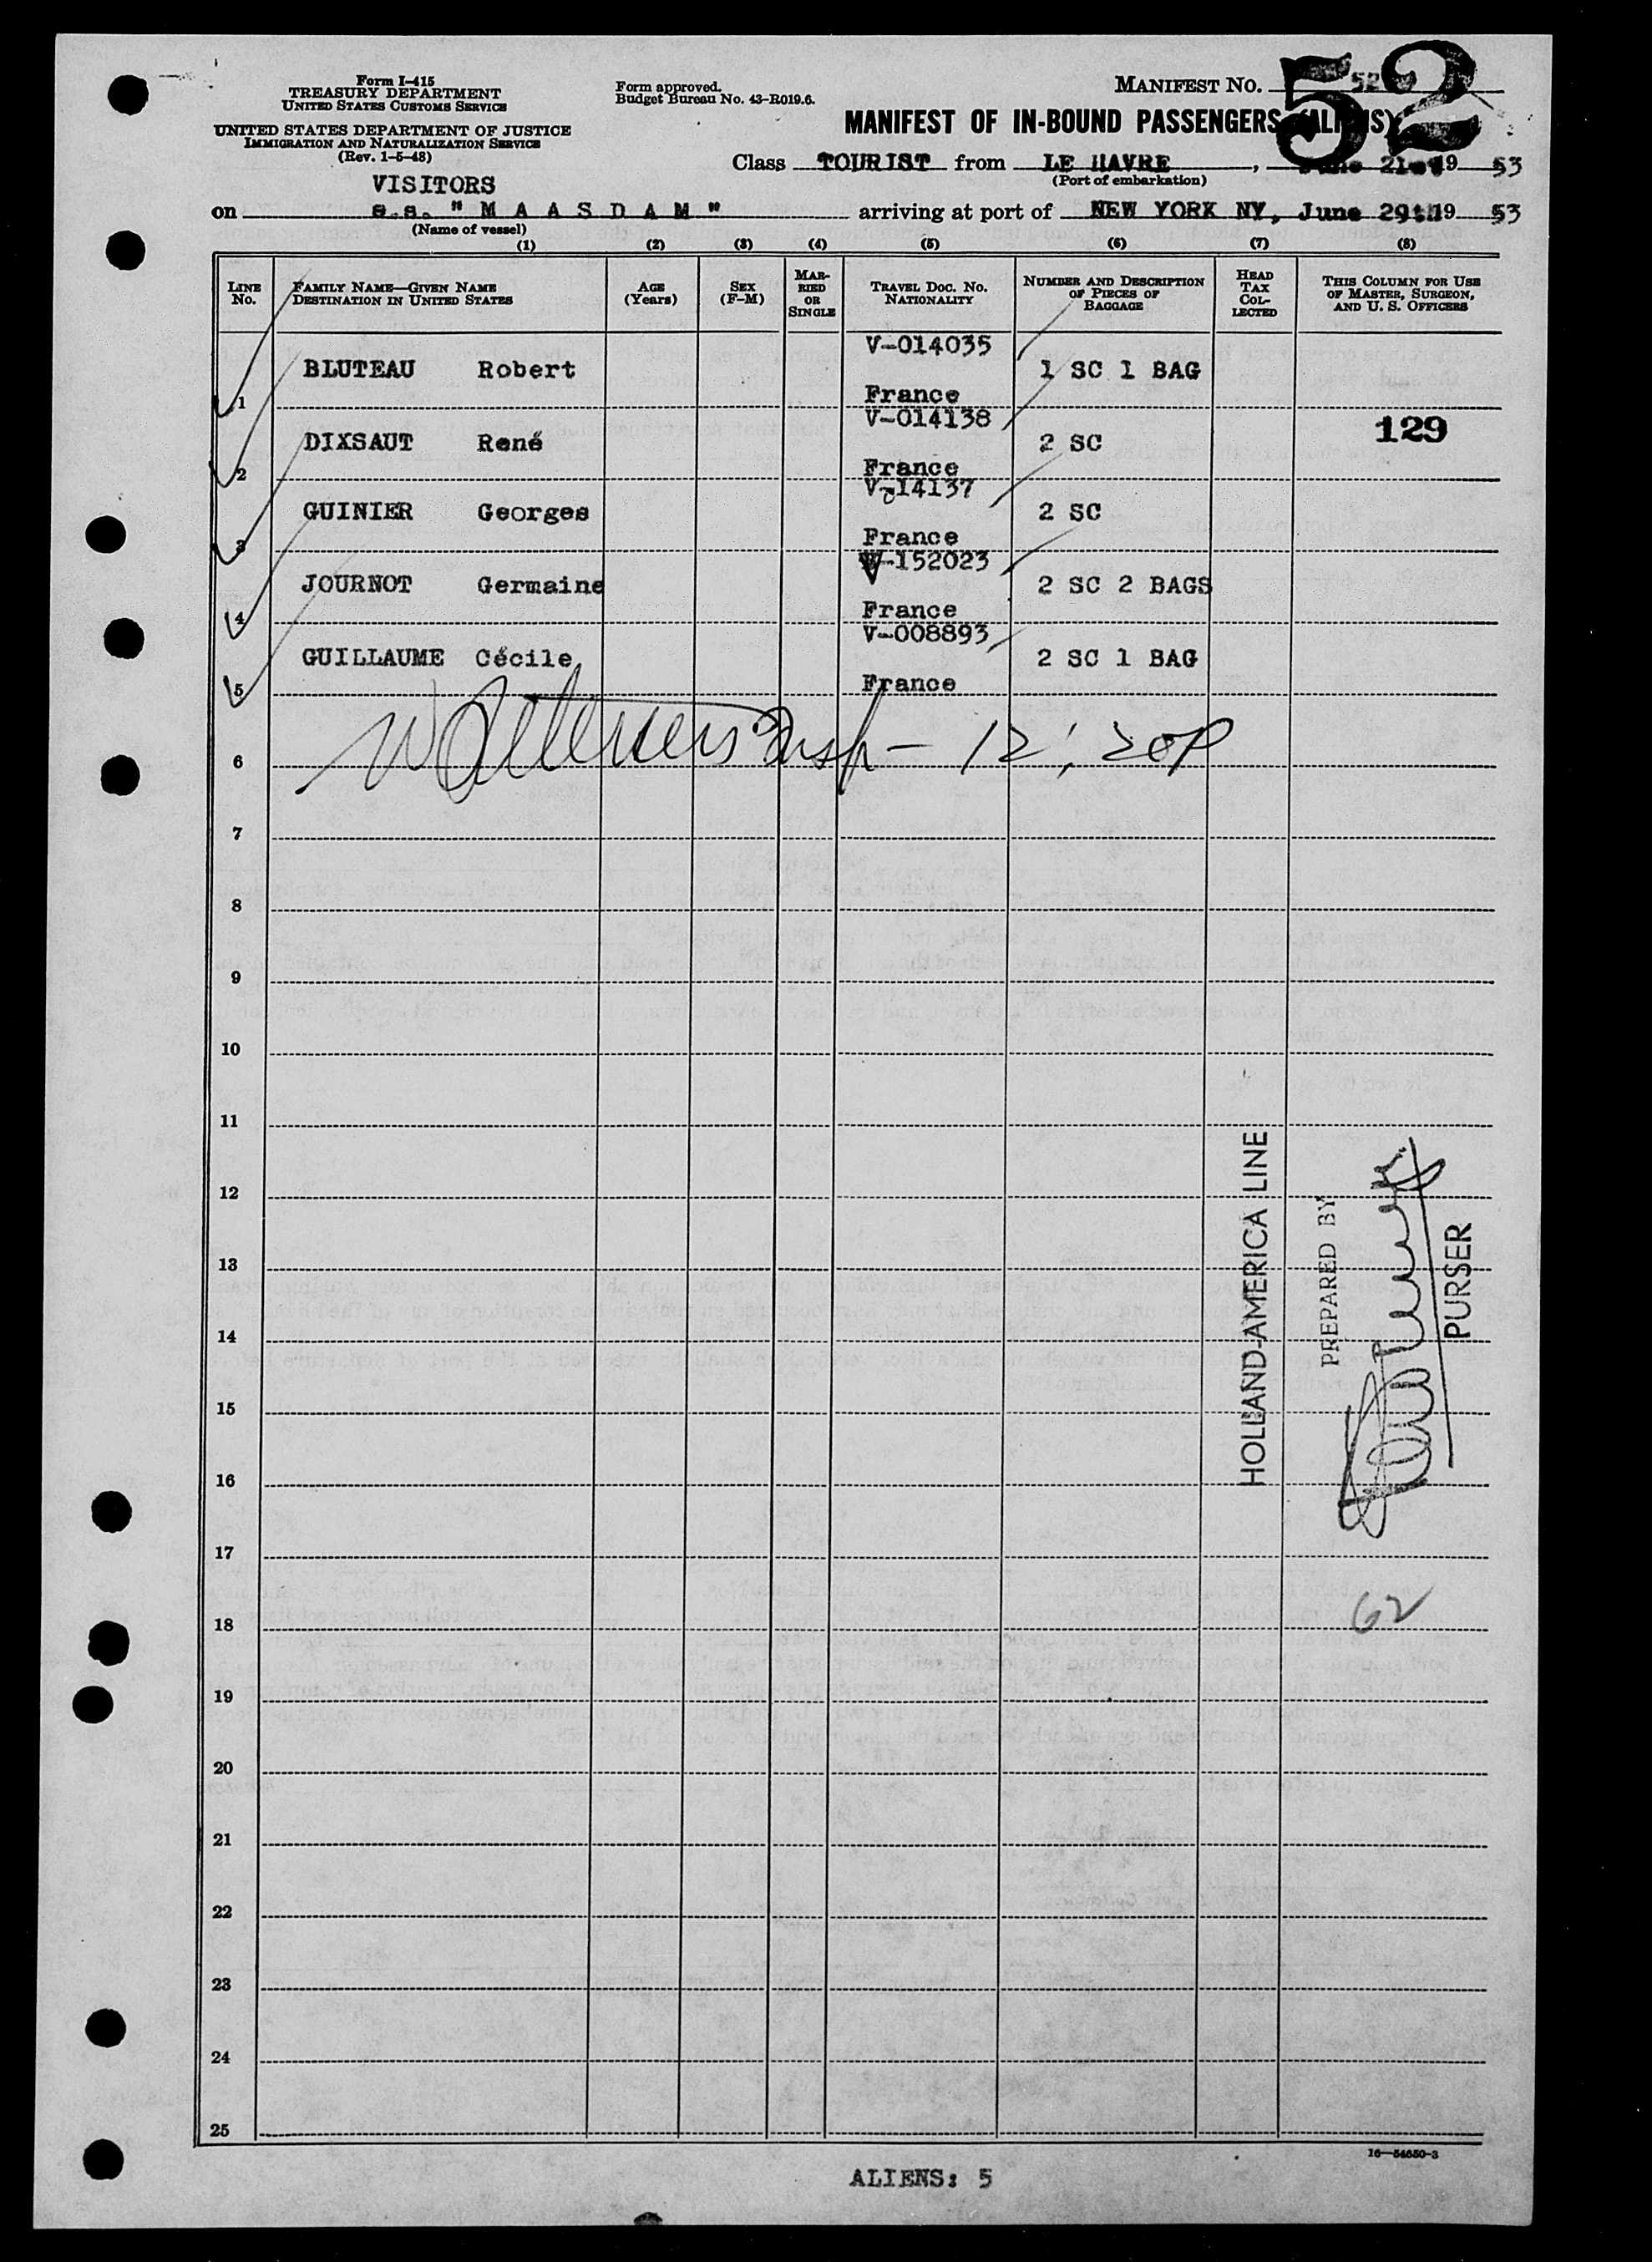 Form I-415
TREASURY DEPARTMENT
UNITED STATES CUSTOMS SERVICE
UNITED STATES DEPARTMENT OF JUSTICE
IMMIGRATION AND NATURALIZATION SERVICE
(Rev. 1-5-48)
Form approved.
Budget Bureau No. 43-R019.6.
MANIFEST NO. 52
52
MANIFEST OF IN-BOUND PASSENGERS (ALIENS)
Class TOURIST from LE HAVRE, June 21st 19 53
(Port of embarkation)
VISITORS
on s.s. "M A A S D A M" arriving at port of NEW YORK NY, June 29th 19 53
(Name of vessel)
(1) (2) (3) (4) (5) (6) (7) (8)
LINE No.
FAMILY NAME—GIVEN NAME
DESTINATION IN UNITED STATES
AGE (Years)
SEX (F-M)
MARRIED OR SINGLE
TRAVEL DOC. NO. NATIONALITY
NUMBER AND DESCRIPTION OF PIECES OF BAGGAGE
HEAD TAX COLLECTED
THIS COLUMN FOR USE OF MASTER, SURGEON, AND U. S. OFFICERS
V-014035
1 BLUTEAU Robert France 1 SC 1 BAG
V-014138
129
2 DIXSAUT René France 2 SC
V-14137
3 GUINIER Georges France 2 SC
V-152023
4 JOURNOT Germaine France 2 SC 2 BAGS
V-008893
5 GUILLAUME Cécile France 2 SC 1 BAG
6
7
8
9
10
11
12
13
14
15
16
17
18
19
20
21
22
23
24
25
HOLLAND-AMERICA LINE
PREPARED BY
PURSER
62
16—54650-3
ALIENS: 5